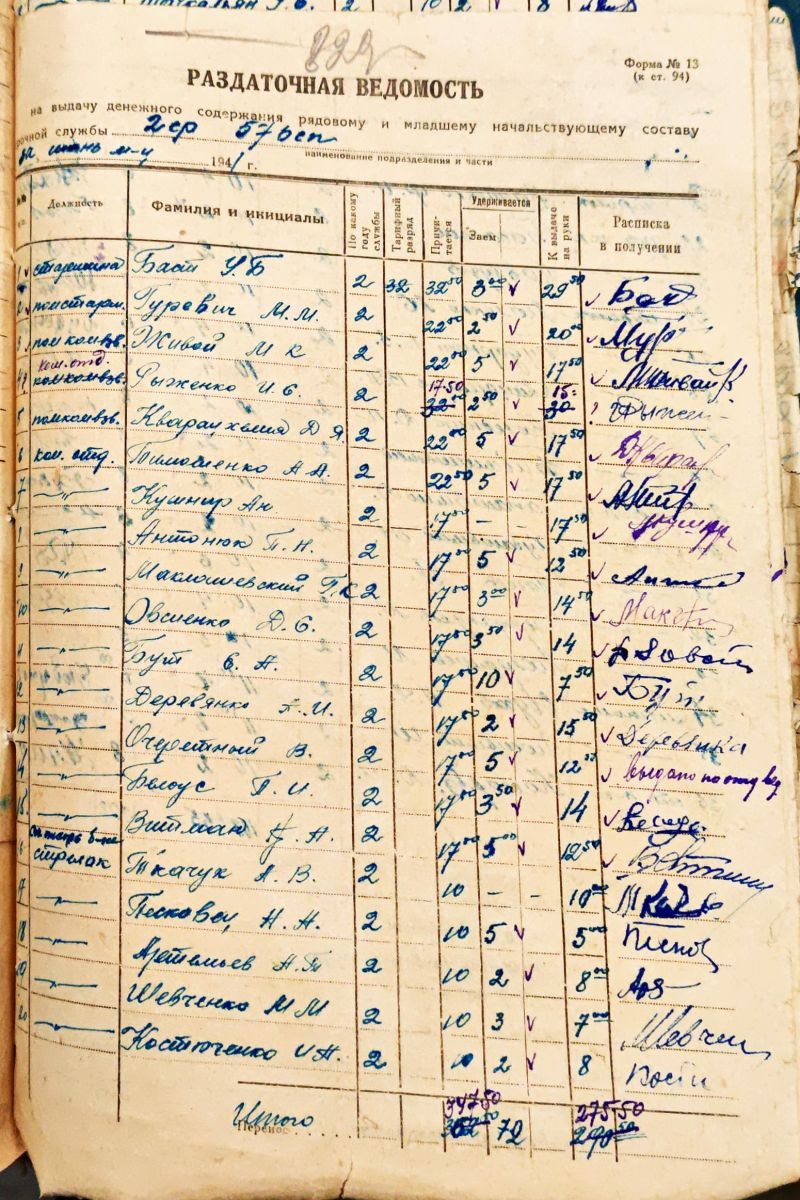 822
Форма № 13
(к ст. 94)
РАЗДАТОЧНАЯ ВЕДОМОСТЬ
на выдачу денежного содержания рядовому и младшему начальствующему составу
срочной службы 2 ср 57 всп
за июнь м-ц 1941 г. наименование подразделения и части
Должность Фамилия и инициалы По какому году службы Тарифный разряд Причитается Удерживается Заем К выдаче на руки Расписка в получении
1 старшина Баст У.Б 2 32 32 50 3 00 v 29 50 v
2 помстарш. Гуревич М.М. 2 22 00 2 50 v 20 00 v
3 помкомвзв. Живой М К 2 22 00 5 v 17 50 v
4 ком. отд. помкомвзв. Рыженко И.С. 2 17-50 32-00 2 50 v 15- 30
5 помкомвзв. Кварацхелия Д Я. 2 22 00 5 v 17 50 v
6 ком. отд. Тимошенко А А. 2 22 50 5 v 17 50 v
7 —"— Кушнир Ан 2 17 50 - 17 50 v
8 —"— Антонюк П.Н. 2 17 00 5 v 12 50 v
9 —"— Маклашевский П.К 2 17 00 3 00 v 14 50 v
10 —"— Овсиенко Д.С. 2 17 50 3 50 v 14 v
11 —"— Бут С.А. 2 17 50 10 v 7 50 v Бут
12 —"— Деревянко А.И. 2 17 00 2 v 15 50 v Деревянка
13 —"— Очеретный В. 2 17 00 5 v 12 v выдано по отд вед
14 —"— Белоус П.И. 2 17 00 3 50 v 14 v
15 —"— Витман А. 2 17 00 5 00 v 12 50 v
6 стрелок Ткачук А.В. 2 10 - - 10 00
7 —"— Песковец Н.Н. 2 10 5 v 5 00
18 —"— Артемьев А.Т 2 10 2 v 8 00
19 —"— Шевченко М М 2 10 3 v 7 00 Шевчен
20 —"— Костюченко И.А. 2 10 2 v 8 Кости
347 50 275-50
Итого 72 290 50
Перенос